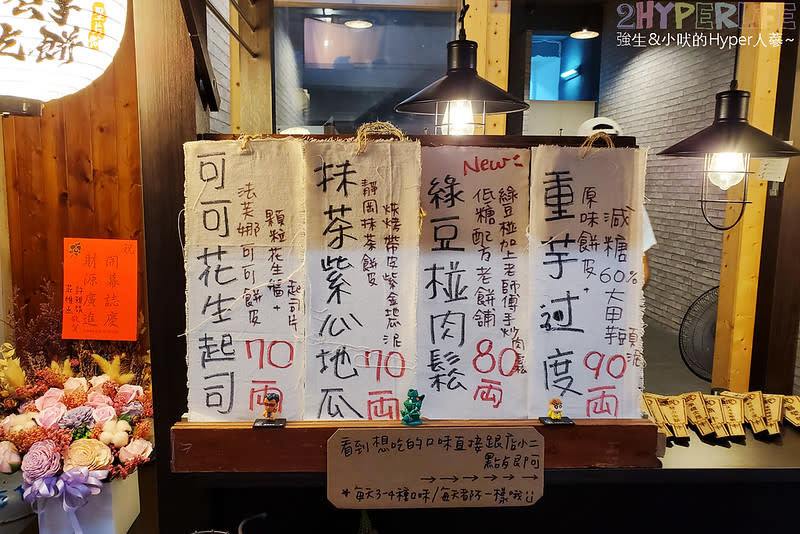 2HYPERLIFE
強生&小吠的Hyper人蔘~
吃餅
祝
開幕誌慶
財源廣進
可可花生起司
法芙娜可可餅皮
顆粒花生醬+
起司片
70両
抹茶紫心地瓜
靜岡抹茶餅皮
烘烤帶皮紫金地瓜泥
70両
New
綠豆椪肉鬆
綠豆椪加上老師傅手炒肉鬆
低糖配方老餅舖
80両
重芋过度
原味餅皮+
減糖60%大甲芋頭泥
90両
看到想吃的口味直接跟店小二
點餐即可
→→→→→→
*每天3-4種口味/每天都不一樣哦